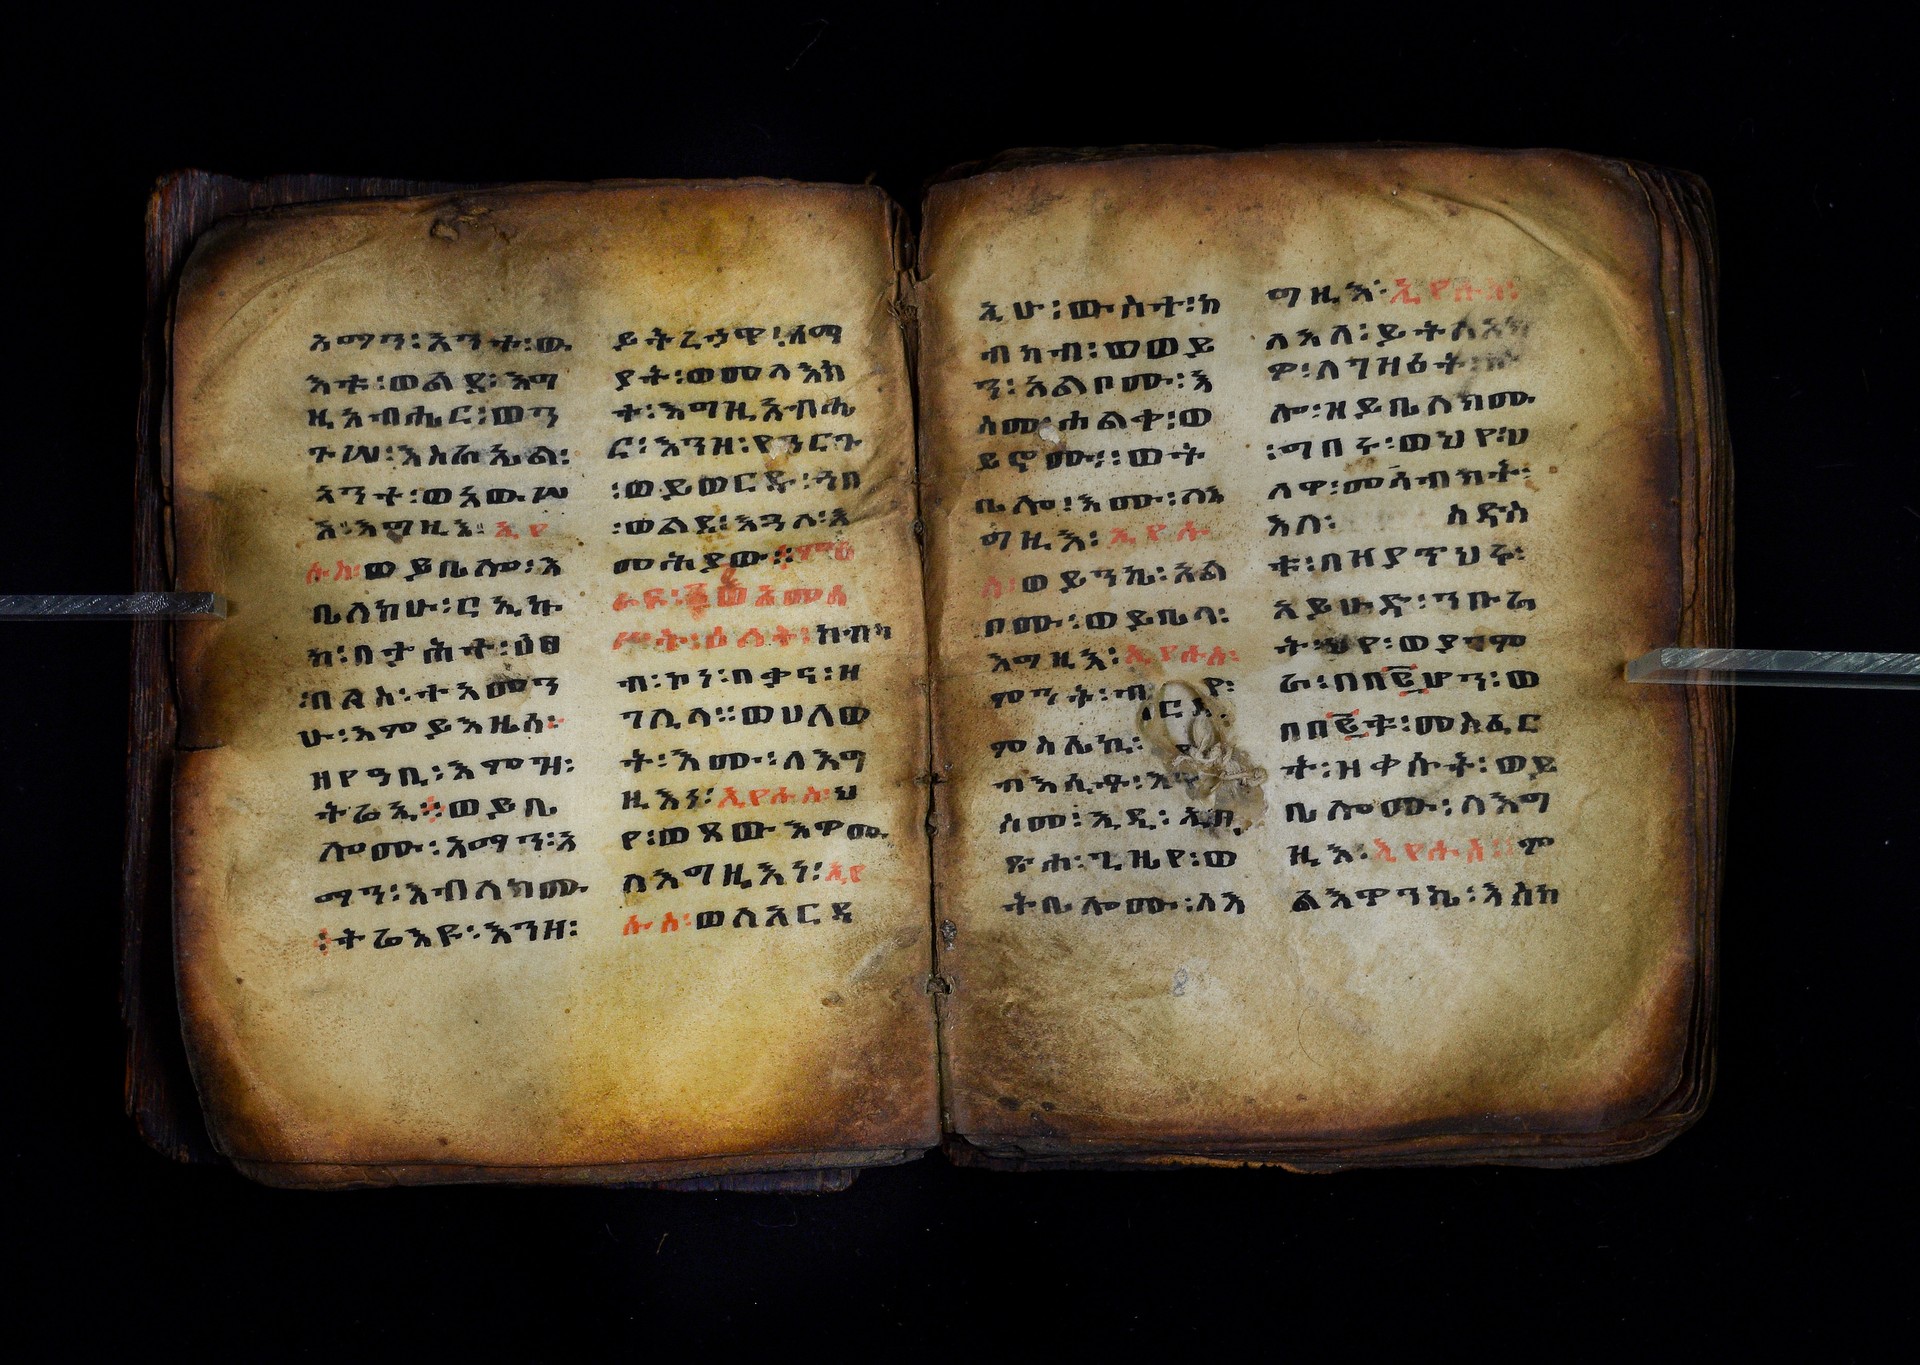 አማን፡አንተ፡ው
እቱ፡ወልደ፡እግ
ዚአብሔር፡ወን
ጉሠ፡እስራኤል፡
አንተ፡ወአውሠ
አ፡እግዚእ፡ኢየ
ሱስ፡ወይቤሎ፡እ
ቤለከሁ፡ርኢኩ
ከ፡በታሕተ፡ዕፀ
፡በለስ፡ተአመን
ሁ፡እምይእዜሰ፡
ዘየዓቢ፡እምዝ፡
ትሬኢ፡ወይቤ
ሎሙ፡አማን፡አ
ማን፡እብለክሙ
፡ትሬእዩ፡እንዘ፡
ይትረኃዋ፡ሰማ
ያት፡ወመላእክ
ተ፡እግዚአብሔ
ር፡እንዘ፡የዓርጉ
፡ወይወርዱ፡ኃበ
፡ወልደ፡እጓለ፡እ
መሕያው፡
ከብካ
ብ፡ኮነ፡በቃና፡ዘ
ገሊላ፡፡ወሀለወ
ት፡እሙ፡ለእግ
ዚእነ፡ኢየሱስ፡ህ
የ፡ወጸውእዎሙ
ለእግዚእነ፡ኢየ
ሱስ፡ወለአርዳ
ኢሁ፡ውስተ፡ከ
ብካብ፡ወወይ
ን፡አልቦሙ፡እ
ስመ፡ሐልቀ፡ወ
ይኖሙ፡፡ወት
ቤሎ፡እሙ፡ለእ
ግዚእ፡ኢየሱ
ስ፡ወይንኬ፡አል
ቦሙ፡ወይቤላ፡
እግዚእ፡ኢየሱስ፡
ምንት፡ብ
ምስሌኪ፡
ብእሲቶ፡
ስመ፡ኢዲ፡
ጽሐ፡ጊዜየ፡ወ
ትቤሎሙ፡ለእ
ማዚእ፡ኢየሱስ፡
ለእለ፡ይትለአክ
ዎ፡ለግዝፊት፡
ሎ፡ዘይቤለክሙ
፡ግበሩ፡ወህየ፡ሀ
ለዋ፡መሳብክት፡
እለ፡ ስድስ
ቱ፡በዝያጥህሩ፡
አይሁድ፡ንቡራ
ት፡ህየ፡ወያገም
ራ፡በበ፪ሆን፡ወ
በበ፫ቱ፡መስፈር
ት፡ዝቀሱት፡ወይ
ቤሎሙ፡ለእግ
ዚእ፡ኢየሱስ፡ም
ልእዎንኬ፡እስከ
8